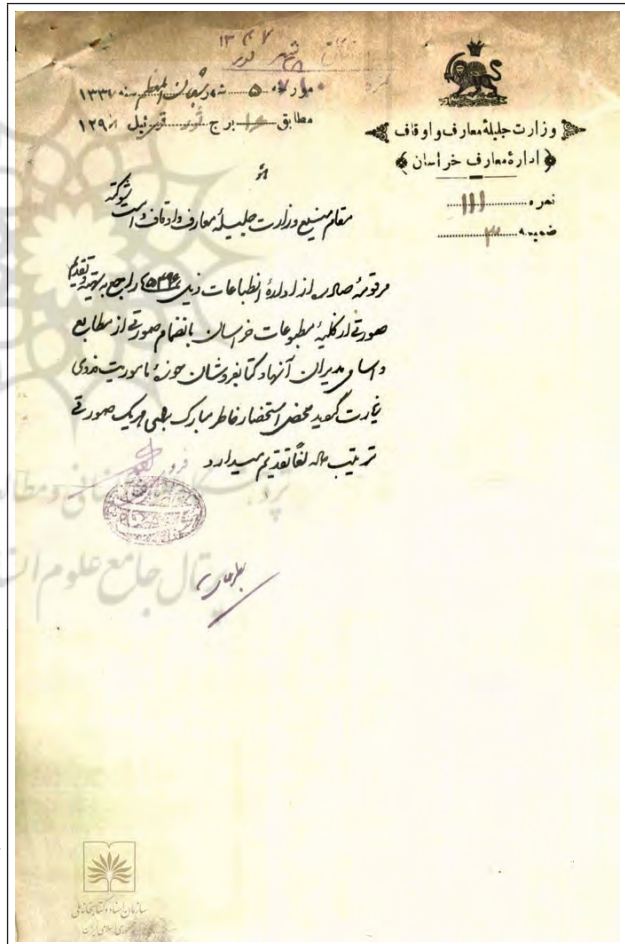 وزارت جلیلهٔ معارف و اوقاف
ادارهٔ معارف خراسان
نمره ۱۱۱
ضمیمه ۳
مورخه ۵ شهر شعبان المعظم سنه ۱۳۳۷
مطابق برج ثور ئیل ۱۲۹۸
مقام منیع وزارت جلیلهٔ معارف و اوقاف دامت شوکته
مرقومهٔ صادره از ادارهٔ انطباعات ذیل راجع به تهیه و تقدیم
صورتی از کلیهٔ مطبوعات خراسان بانضمام صورتی از مطابع
و اسامی مدیران آنها و کتابفروشان حوزهٔ ماموریت فدوی
زیارت گردید محض استحضار خاطر مبارک هر یک صورتی
ترتیب داده لفاً تقدیم میدارد
سازمان اسناد و کتابخانه ملی
جمهوری اسلامی ایران